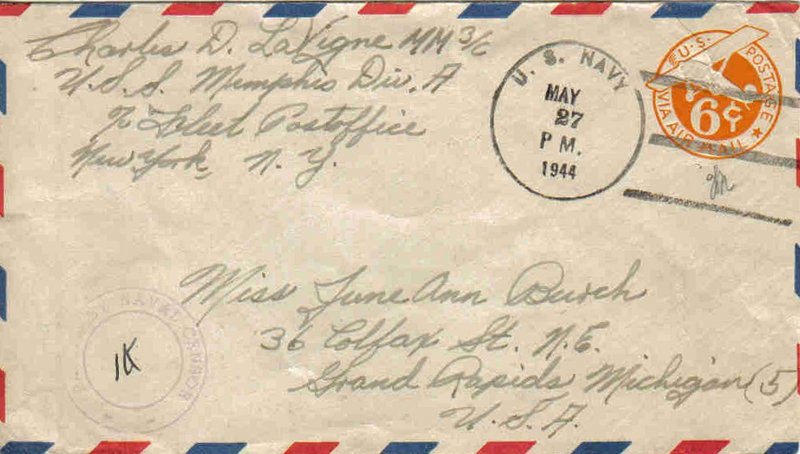 Charles D. LaVigne MM 3/C
U.S.S. Memphis Div. A
% Fleet Postoffice
New York, N.Y.
U. S. NAVY
MAY
27
P M.
1944
U.S. POSTAGE
VIA AIR MAIL
6¢
Miss June Ann Burch
36 Colfax St. N.E.
Grand Rapids Michigan (5)
U.S.A.
NAVAL CENSOR